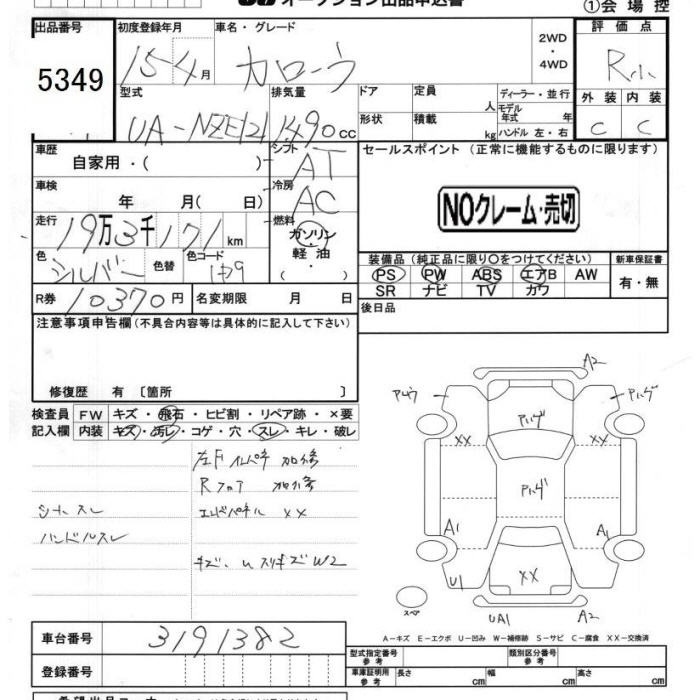 オークション出品申込書
①会場控
出品番号 初度登録年月 車名・グレード 2WD・4WD 評価点
5349 15-4月 カローラ R
外装 内装
C C
型式 排気量 ドア 定員 人 ディーラー・並行
UA-NZE121 1490cc 形状 積載 kg モデル年式 年 ハンドル 左・右
車歴 自家用・( ) シフト AT
セールスポイント (正常に機能するものに限ります)
車検 年 月( 日) 冷房 AC
NOクレーム・売切
走行 19万3千171km 燃料 ガソリン・軽油・( )
色 シルバー 色替 色コード 1F9
装備品 (純正品に限り○をつけてください) 新車保証書
PS PW ABS エアB AW 有・無
SR ナビ TV カワ
R券 10370円 名変期限 月 日
後日品
注意事項申告欄 (不具合内容等は具体的に記入して下さい)
修復歴 有 〔箇所 〕
検査員 FW キズ・飛石・ヒビ割・リペア跡・×要
記入欄 内装 キズ・汚レ・コゲ・穴・スレ・キレ・破レ
左Fインパネ 加修
Rフロア 加修
シートスレ エンドパネル XX
ハンドルスレ
キズ、U スリキズ W2
A2
アハゲ
アハゲ
XX XX
アハゲ
A1 A1
U1 XX
スペア
UA1 A2
A-キズ E-エクボ U-凹み W-補修跡 S-サビ C-腐食 XX-交換済
車台番号 3191382
型式指定番号 参考 類別区分番号 参考
登録番号
車庫証明用 参考 長さ cm 幅 cm 高さ cm
希望出品コーナー